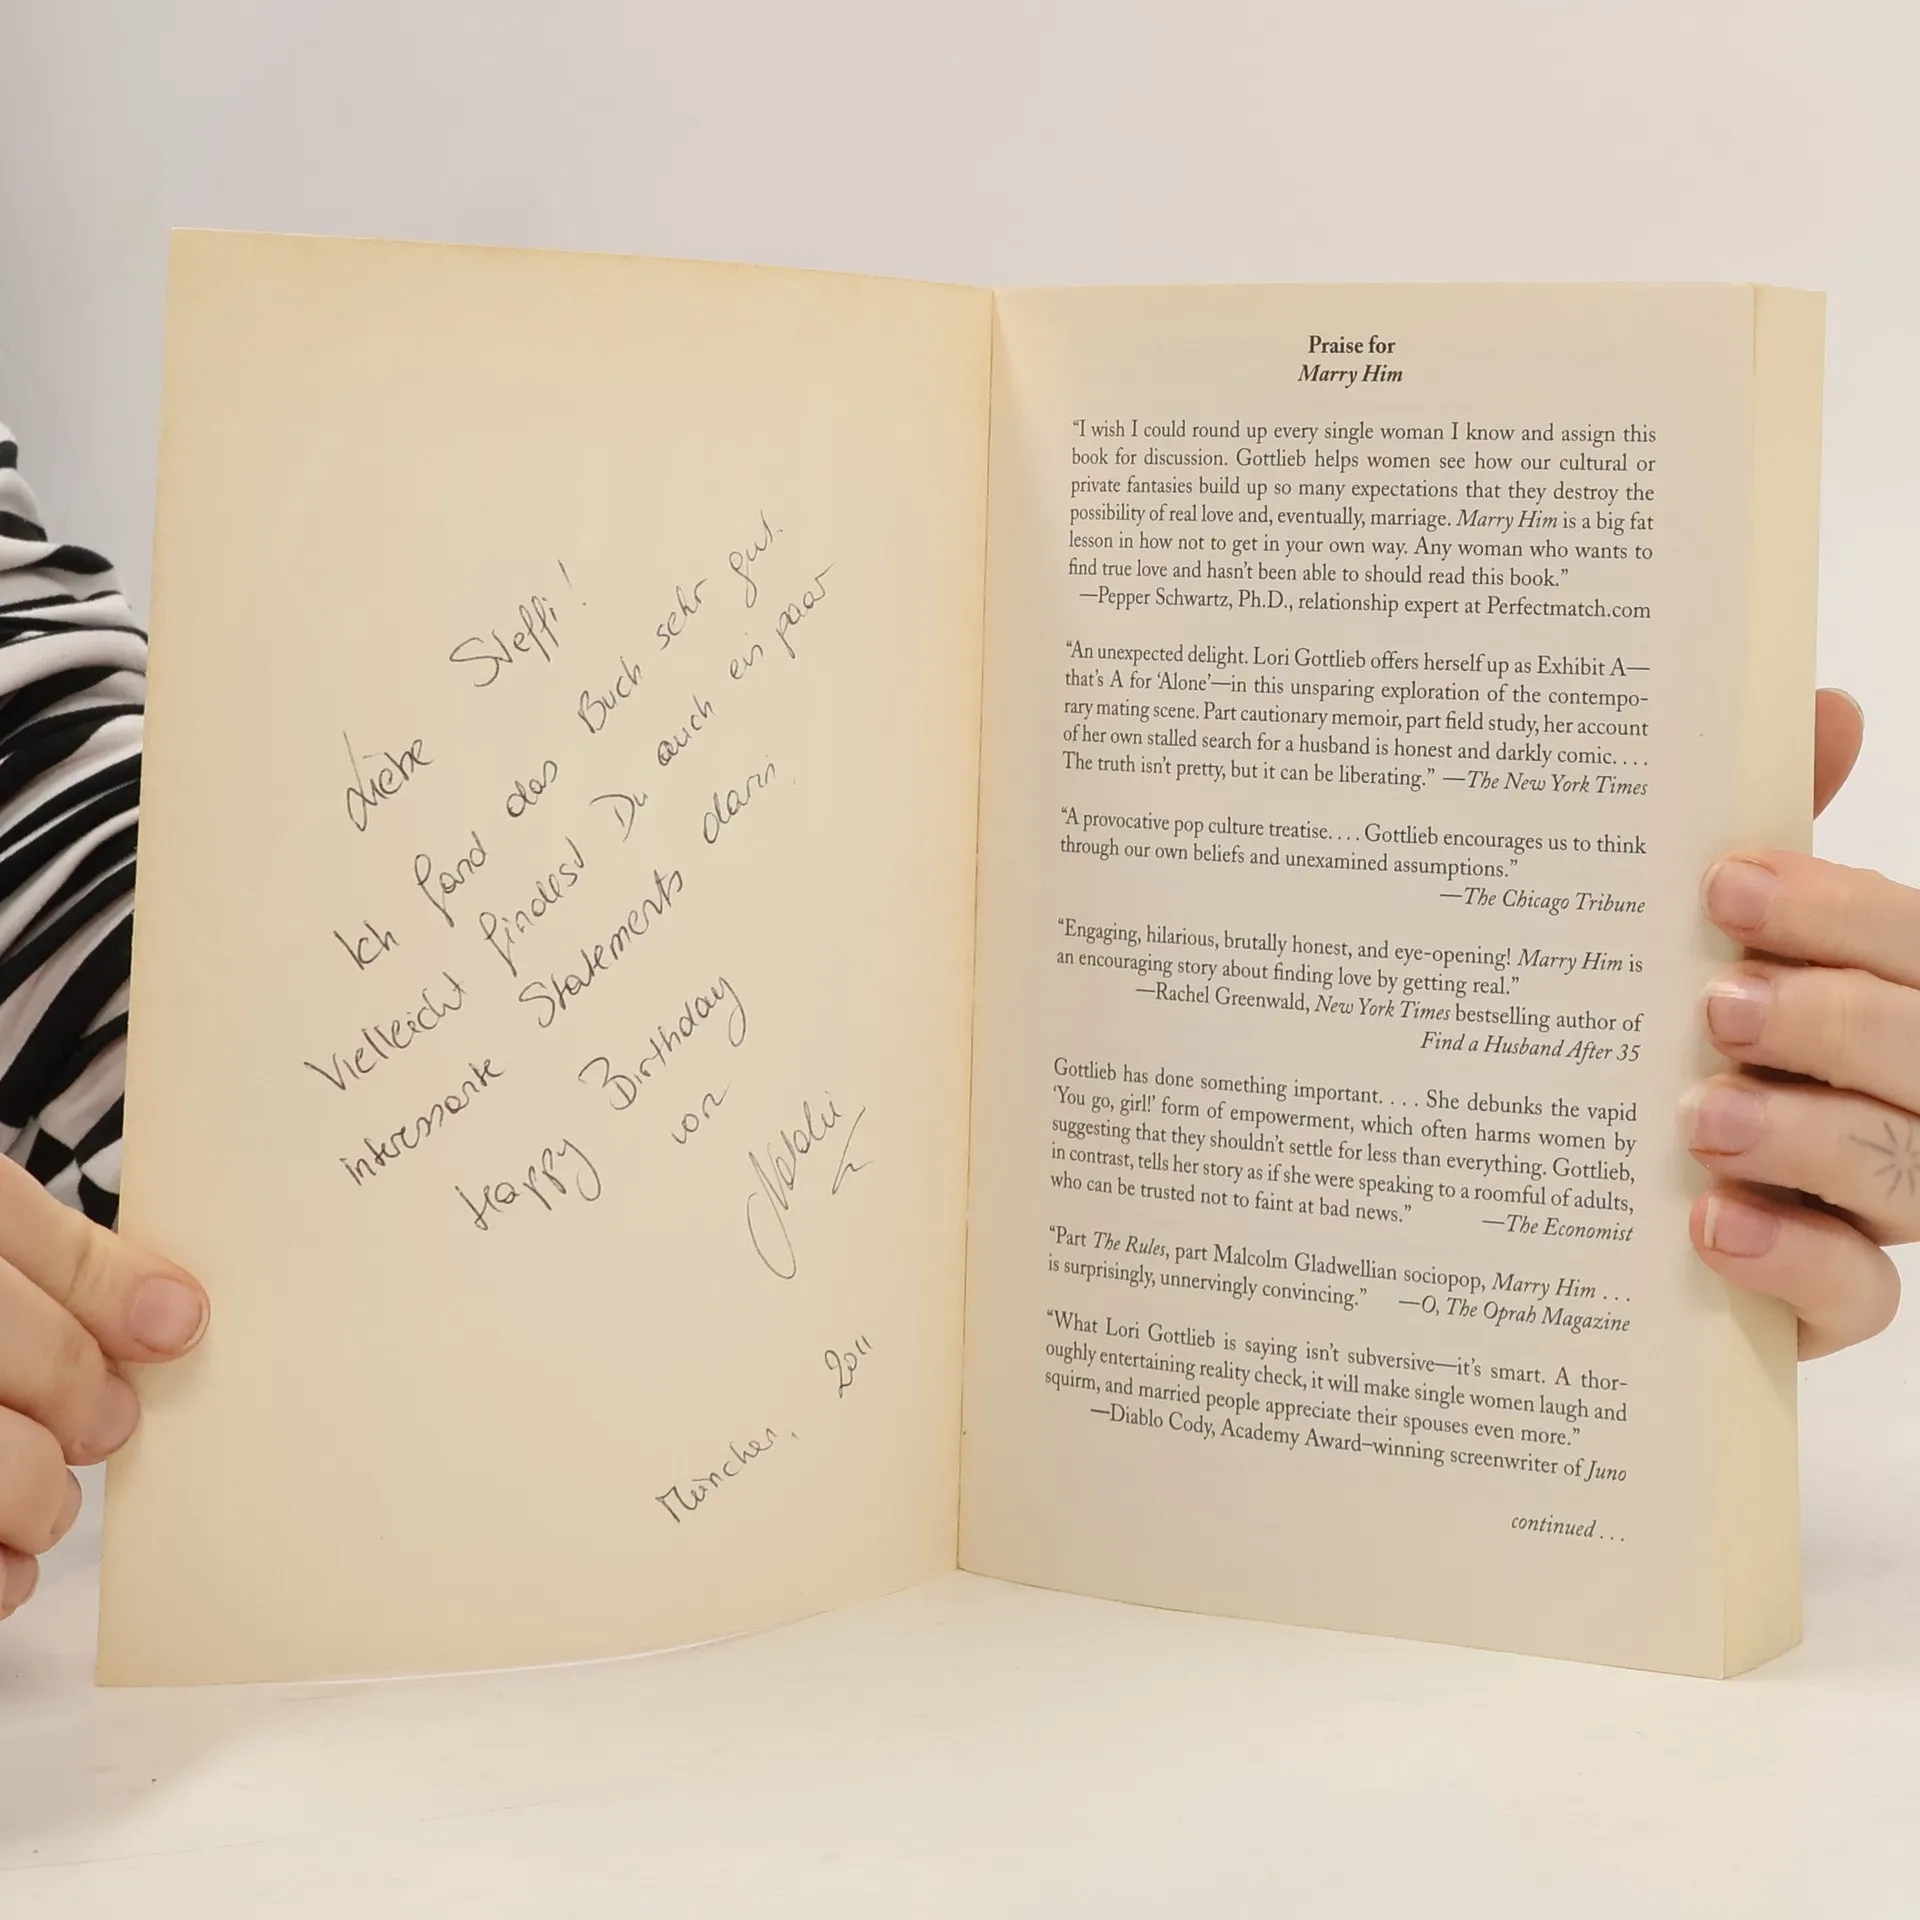 Liebe Steffi!
Ich fand das Buch sehr gut.
Vielleicht findest Du auch ein paar
interessante Statements darin.
Happy Birthday
von
Natalie
München, 2011
Praise for
Marry Him
“I wish I could round up every single woman I know and assign this
book for discussion. Gottlieb helps women see how our cultural or
private fantasies build up so many expectations that they destroy the
possibility of real love and, eventually, marriage. Marry Him is a big fat
lesson in how not to get in your own way. Any woman who wants to
find true love and hasn’t been able to should read this book.”
—Pepper Schwartz, Ph.D., relationship expert at Perfectmatch.com
“An unexpected delight. Lori Gottlieb offers herself up as Exhibit A—
that’s A for ‘Alone’—in this unsparing exploration of the contempo-
rary mating scene. Part cautionary memoir, part field study, her account
of her own stalled search for a husband is honest and darkly comic. . . .
The truth isn’t pretty, but it can be liberating.” —The New York Times
“A provocative pop culture treatise. . . . Gottlieb encourages us to think
through our own beliefs and unexamined assumptions.”
—The Chicago Tribune
“Engaging, hilarious, brutally honest, and eye-opening! Marry Him is
an encouraging story about finding love by getting real.”
—Rachel Greenwald, New York Times bestselling author of
Find a Husband After 35
Gottlieb has done something important. . . . She debunks the vapid
‘You go, girl!’ form of empowerment, which often harms women by
suggesting that they shouldn’t settle for less than everything. Gottlieb,
in contrast, tells her story as if she were speaking to a roomful of adults,
who can be trusted not to faint at bad news.” —The Economist
“Part The Rules, part Malcolm Gladwellian sociopop, Marry Him . . .
is surprisingly, unnervingly convincing.” —O, The Oprah Magazine
“What Lori Gottlieb is saying isn’t subversive—it’s smart. A thor-
oughly entertaining reality check, it will make single women laugh and
squirm, and married people appreciate their spouses even more.”
—Diablo Cody, Academy Award–winning screenwriter of Juno
continued . . .